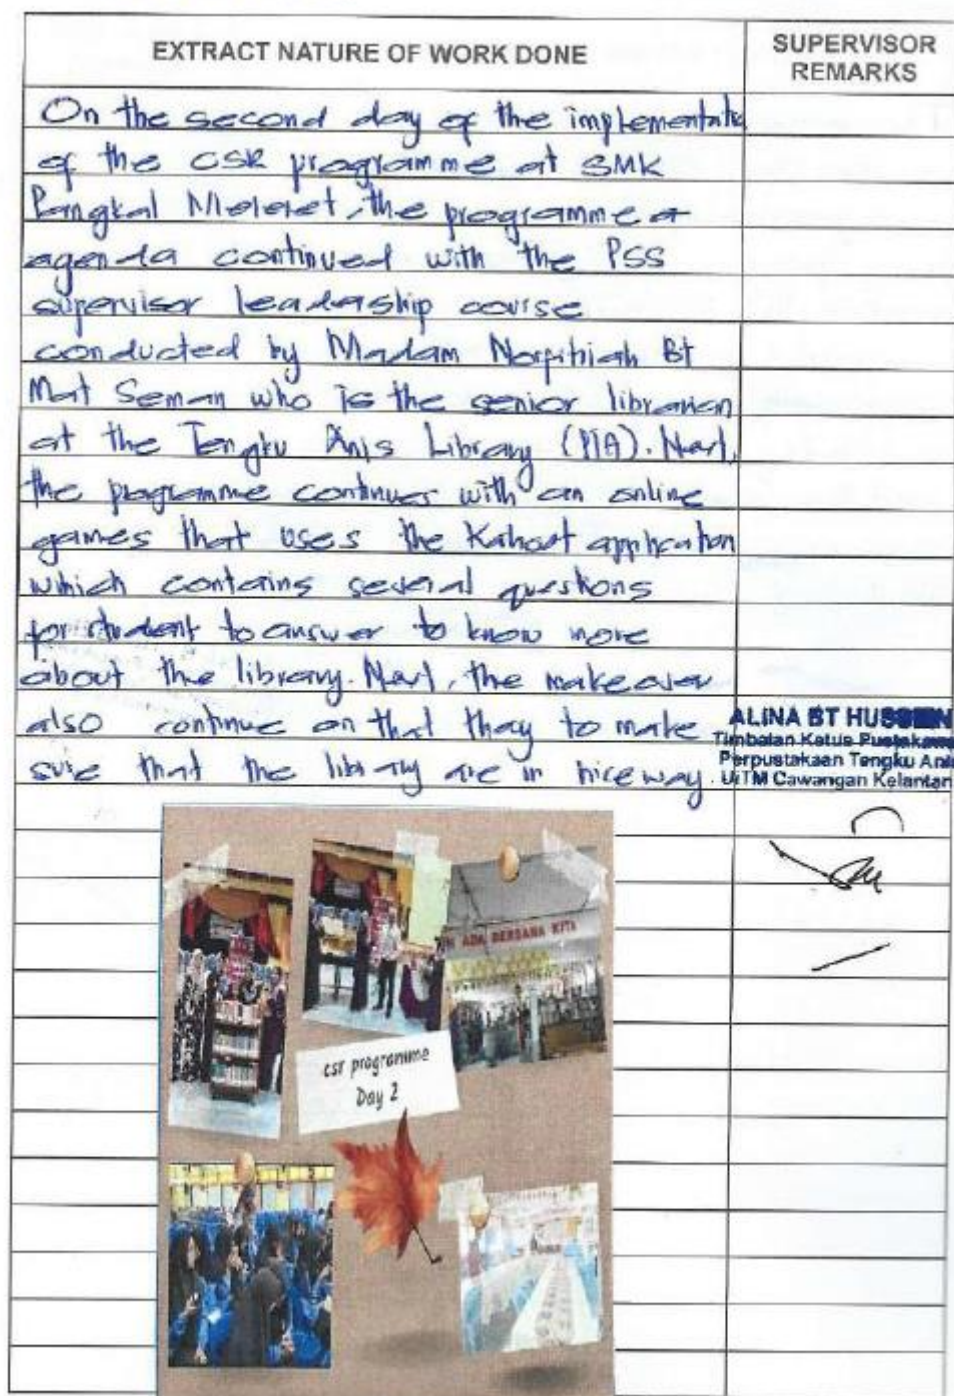 EXTRACT NATURE OF WORK DONE
SUPERVISOR
REMARKS
On the second day of the implementatio
of the CSR programme at SMK
Pangkal Meleret, the programme
agenda continued with the PSS
supervisor leadership course
conducted by Madam Norfithiah Bt
Mat Seman who is the senior librarian
at the Tengku Anis Library (PTA). Next,
the programme continues with an online
games that uses the Kahoot application
which contains several questions
for student to answer to know more
about the library. Next, the makeover
also continue on that thay to make
sure that the library are in nice way.
ALINA BT HUSSEIN
Timbalan Ketua Pustakawan
Perpustakaan Tengku Anis
UiTM Cawangan Kelantan
ADA BERSAMA KITA
csr programme
Day 2